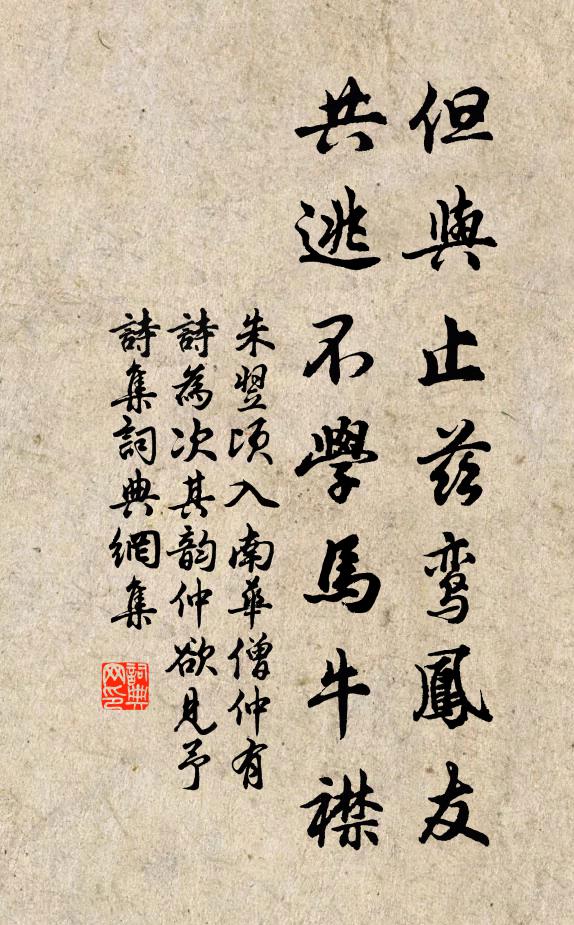 但與止茲鸾鳳友
共逃不學馬牛襟
朱翌頃入南華僧仲有
詩為次其韵仲欲見予
詩集詞典網集
詞典
网印